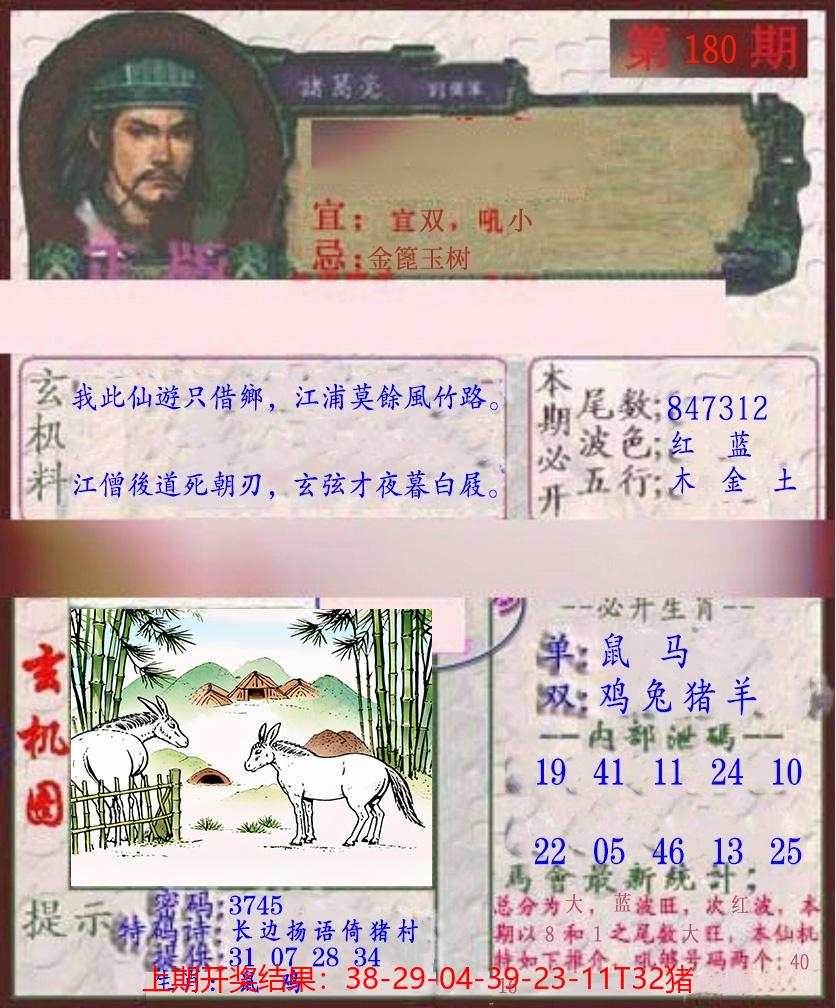 第 180 期
諸葛亮
宜：宜双，吼小
忌：金篦玉树
玄机料
我此仙遊只借鄉，江浦莫餘風竹路。
江僧後道死朝刃，玄弦才夜暮白屐。
本期必开
尾数：847312
波色：红 蓝
五行：木 金 土
--必开生肖--
单：鼠 马
双：鸡兔猪羊
—内部泄碼—
19 41 11 24 10
22 05 46 13 25
馬會最新统计；
总分为大，蓝波旺，次红波，本
期以8和1之尾数大旺，本仙机
特如下推介，吼够号码两个：40
16
玄机图
提示
密码：3745
特码诗：长边扬语倚猪村
提供：31 07 28 34
生肖：鼠 鸡
上期开奖结果：38-29-04-39-23-11T32猪